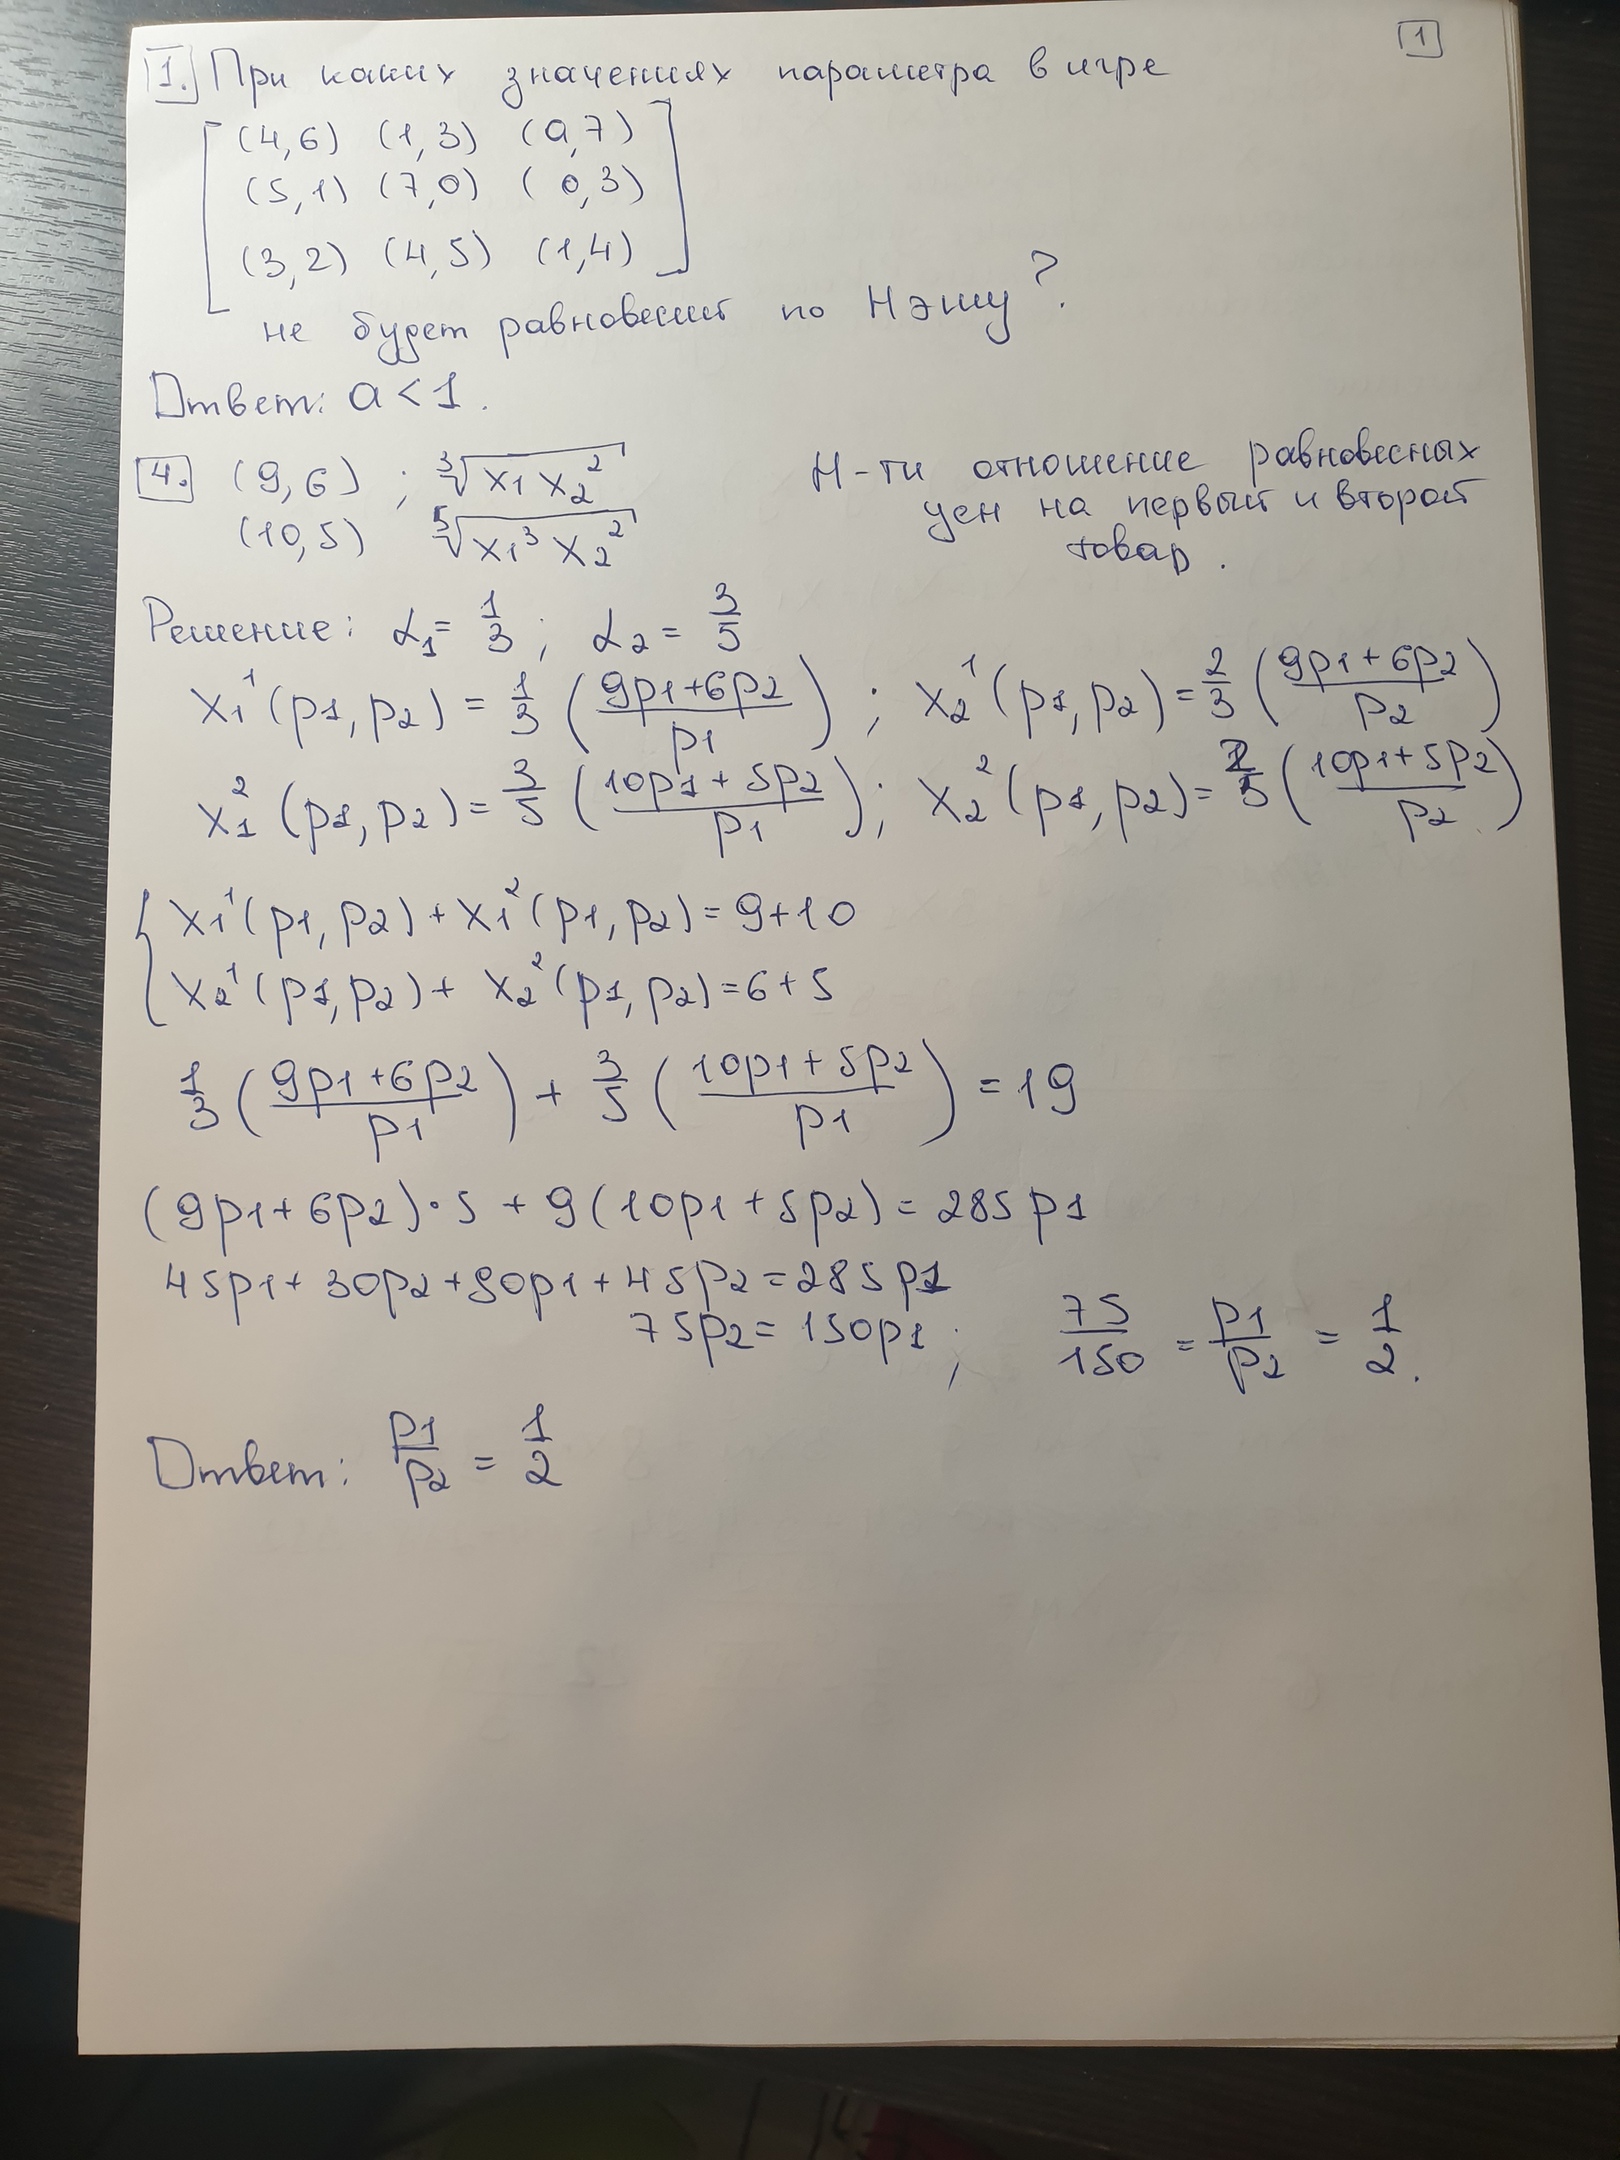 1
1. При каких значениях параметра в игре
(4,6) (1,3) (a,7)
(5,1) (7,0) (0,3)
(3,2) (4,5) (1,4)
не будет равновесий по Нэшу?
Ответ: a<1.
4. (9,6) ; ∛(x₁x₂²) Н-ти отношение равновесных
(10,5) ⁵√(x₁³x₂²) цен на первый и второй
товар.
Решение: α₁ = 1/3; α₂ = 3/5
x₁¹(p₁,p₂) = 1/3 ((9p₁+6p₂)/p₁); x₂¹(p₁,p₂) = 2/3 ((9p₁+6p₂)/p₂)
x₁²(p₁,p₂) = 3/5 ((10p₁+5p₂)/p₁); x₂²(p₁,p₂) = 2/5 ((10p₁+5p₂)/p₂)
{ x₁¹(p₁,p₂) + x₁²(p₁,p₂) = 9+10
x₂¹(p₁,p₂) + x₂²(p₁,p₂) = 6+5
1/3 ((9p₁+6p₂)/p₁) + 3/5 ((10p₁+5p₂)/p₁) = 19
(9p₁+6p₂)·5 + 9(10p₁+5p₂) = 285p₁
45p₁+30p₂+90p₁+45p₂=285p₁
75p₂ = 150p₁; 75/150 = p₁/p₂ = 1/2.
Ответ: p₁/p₂ = 1/2